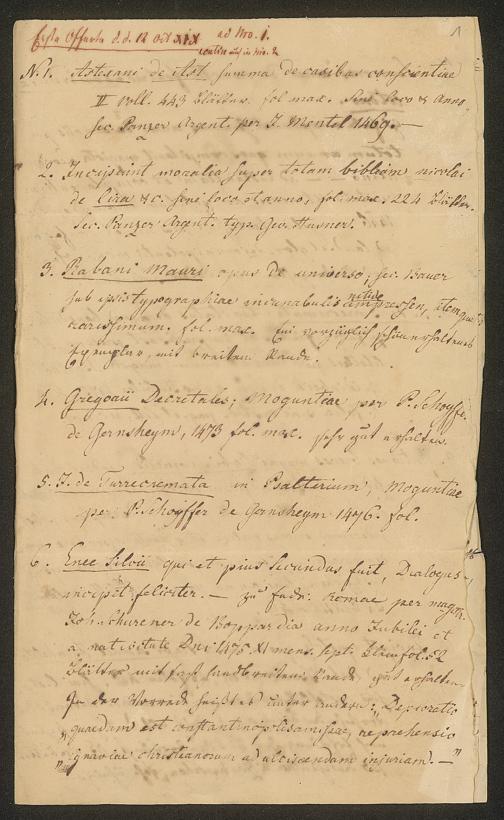 Erste Offerte d.d. 12 Oct XIX ad Nro. 1.
1
N. 1. Astexani de Ast summa de casibus conscientiae
II voll. 443 Blätter. fol max. Sine loco & anno,
sec. Panzer Argent. per J. Mentel 1469.—
2. Incipiunt moralia super totam bibliam nicolai
de Lira &c. sine loco et anno, fol. max. 224 Blätter.
Sec. Panzer Argent. typ. Geo. Husner.
3. Rabani Mauri opus de universo; sec. Bauer
sub ipsis typographiae incunabulis nitide impressum, itemque
rarissimum. fol. max. Ein vorzüglich schön erhaltenes
Exemplar, mit breitem Rande.
4. Gregorii Decretales; Moguntiae per P. Schoyffer
de Gernsheym, 1473 fol. max. sehr gut erhalten.
5. J. de Turrecremata in Psalterium, Moguntiae
per P. Schoyffer de Gernsheym 1476. fol.
6. Enee Silvii qui et pius secundus fuit, Dialogus
incipit feliciter. — zu Ende: Romae per magistr.
Joh. Schurener de Boppardia anno Jubilei et
a nativitate Dni 1475. XI mens. sept. klein fol. 52
Blätter mit fast handbreitem Rande gut erhalten.
In der Vorrede heißt es unter andern: „Deploratio
„quaedam est constantinopolis amissae, reprehensio
„ignaviae christianorum ad ulciscendam injuriam. —"